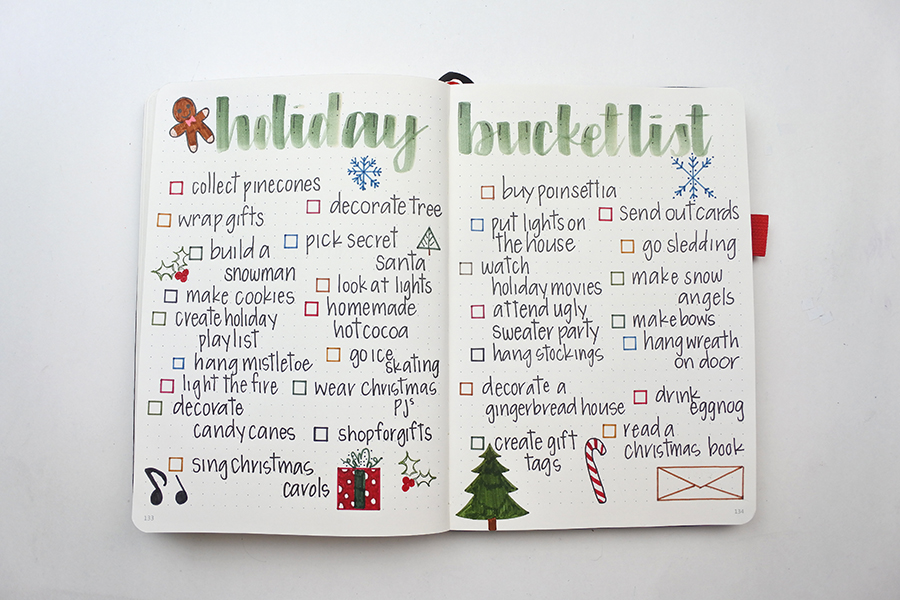 holiday
collect pinecones
decorate tree
wrap gifts
build a
snowman
pick secret
santa
look at lights
make cookies
homemade
hot cocoa
create holiday
playlist
go ice
skating
hang mistletoe
light the fire
wear christmas
PJs
decorate
candy canes
shop for gifts
sing christmas
carols
133
bucket list
buy poinsettia
put lights on
the house
send out cards
go sledding
watch
holiday movies
make snow
angels
attend ugly
sweater party
make bows
hang stockings
hang wreath
on door
decorate a
gingerbread house
drink
eggnog
create gift
tags
read a
christmas book
134